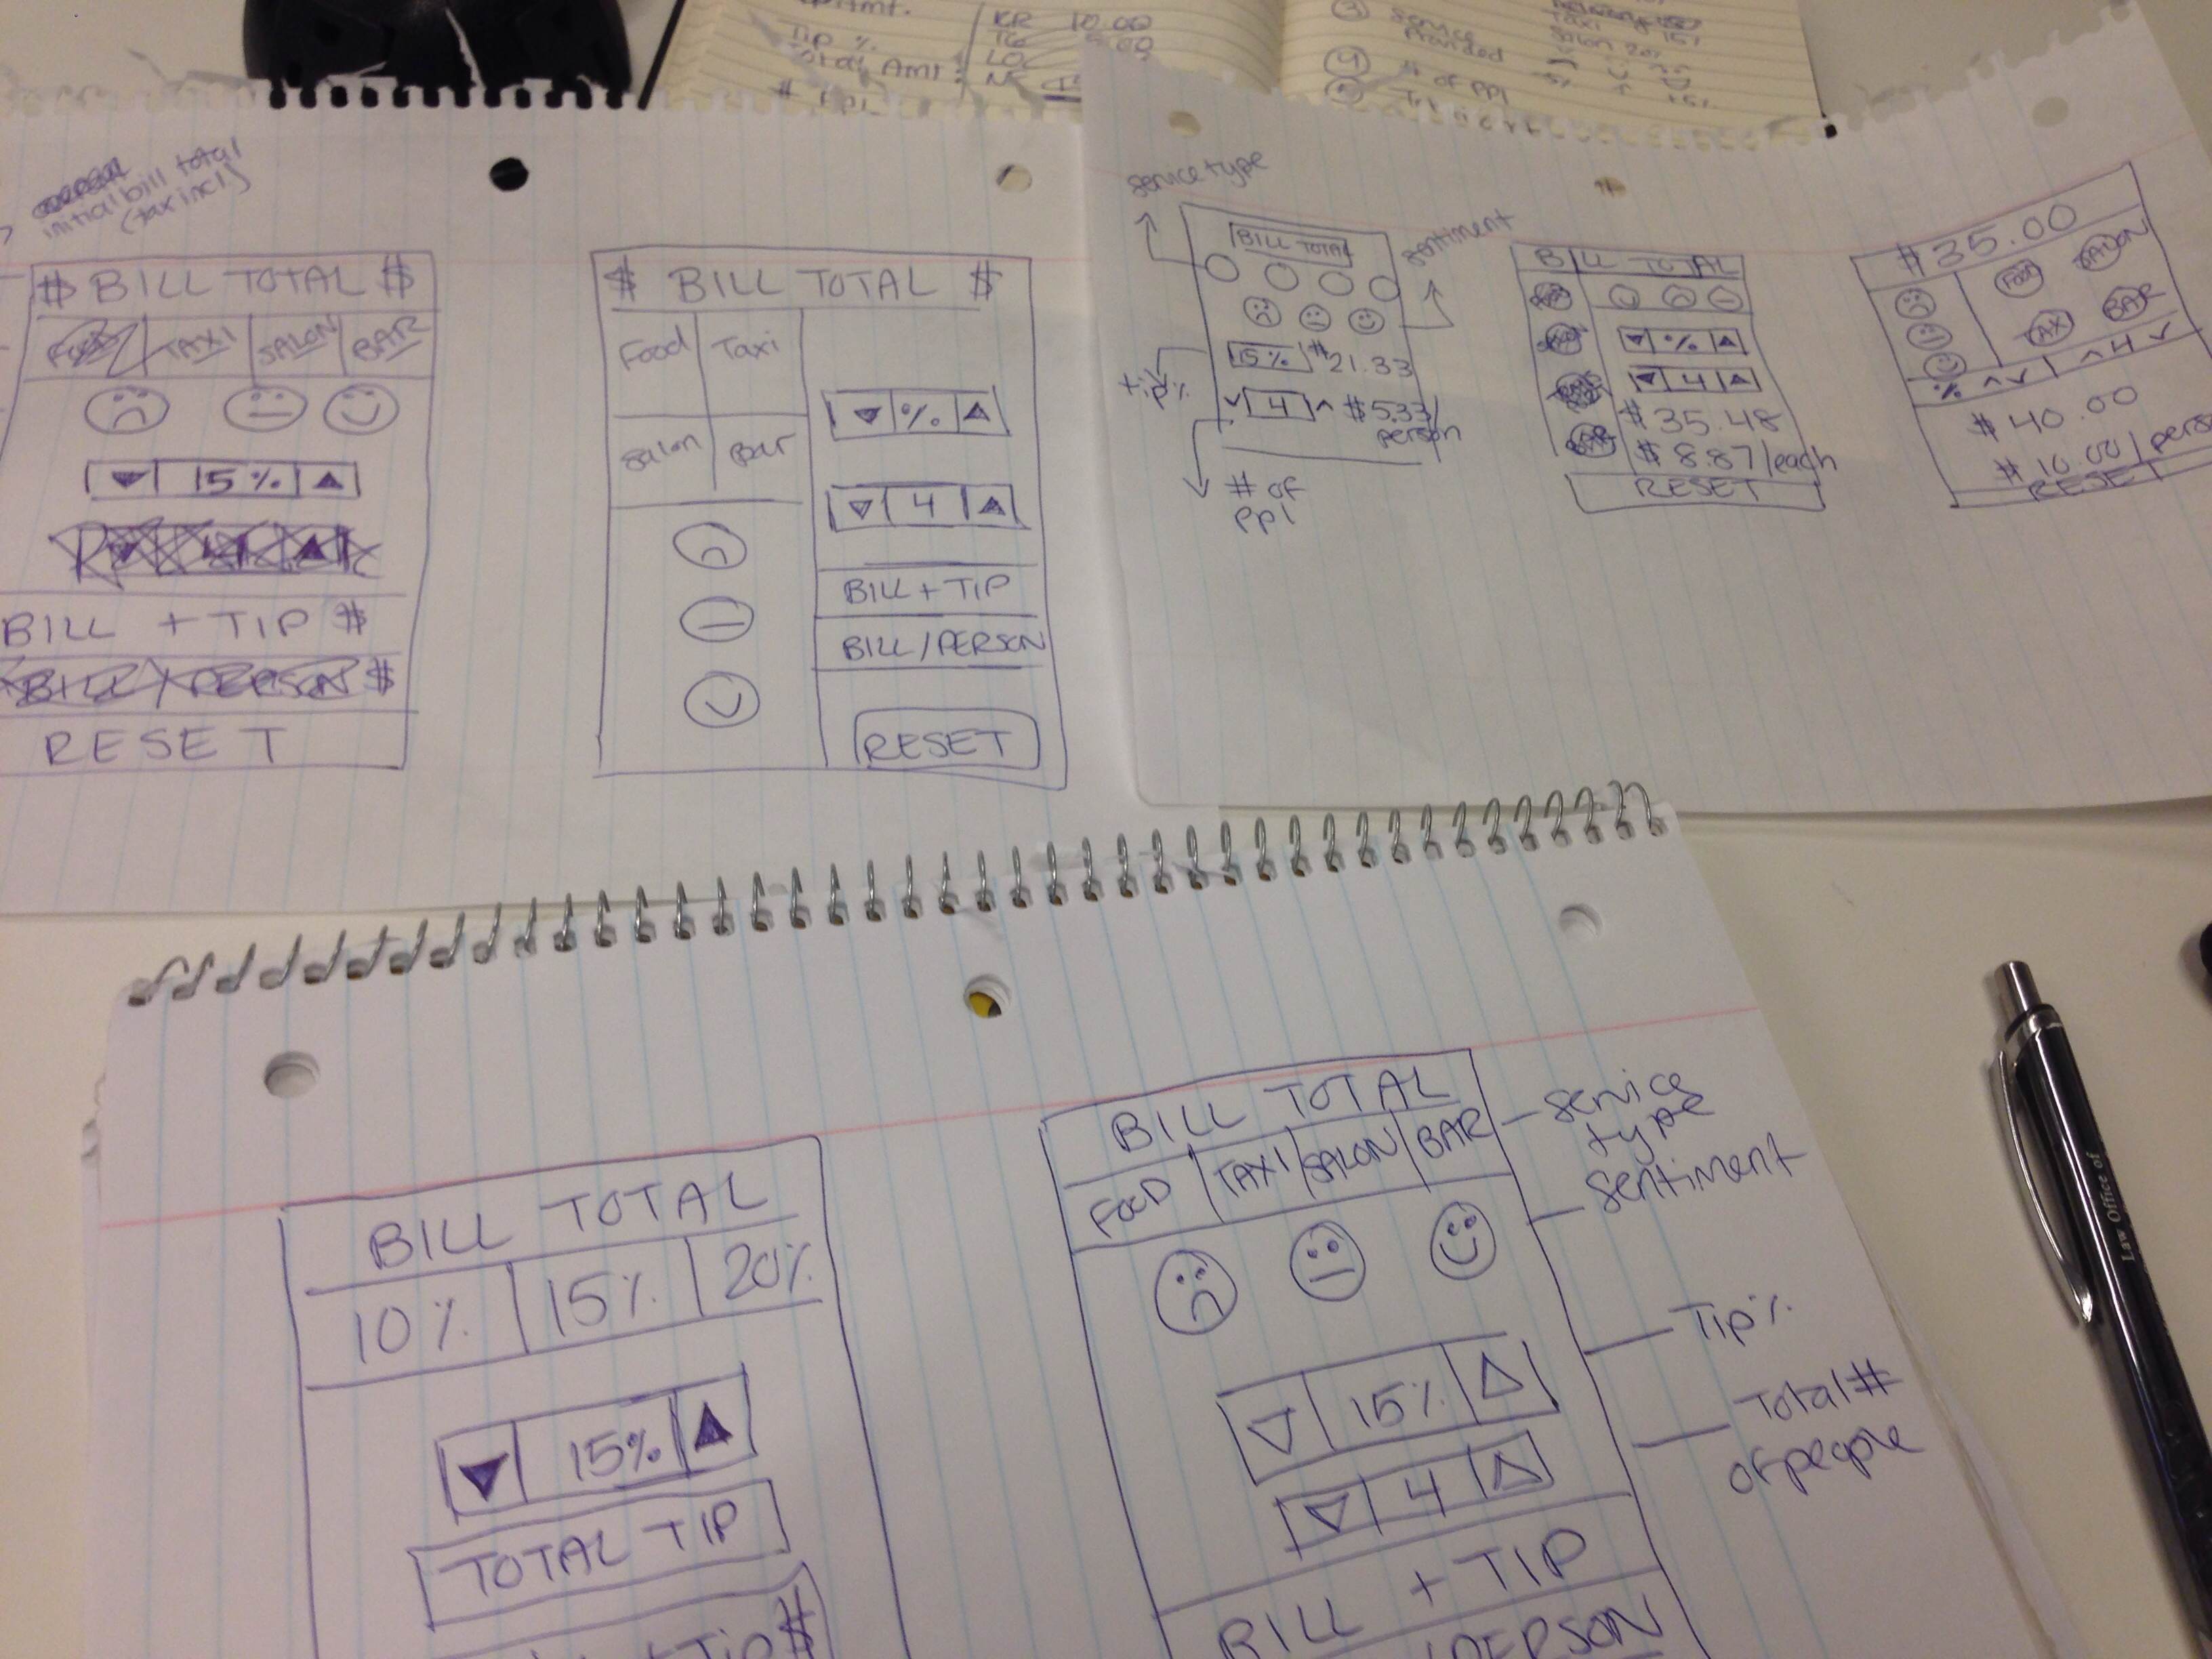 Tip %
Total Amt
KR 10.00
TG 5.00
LO
③ service
provided
Taxi 15%
Salon 20%
④ # of ppl
⑤
initial bill total
(tax incl)
$ BILL TOTAL $
Food TAXI SALON BAR
15%
BILL + TIP $
BILL / PERSON $
RESET
$ BILL TOTAL $
Food Taxi
Salon Bar
%
4
BILL + TIP
BILL / PERSON
RESET
service type
sentiment
BILL TOTAL
15% $21.33
tip %
4 $5.33/
person
# of
ppl
BILL TOTAL
%
4
$35.48
BAR
$8.87/each
RESET
$35.00
Food SALON
TAXI BAR
% 4
$40.00
$10.00/perso
RESET
BILL TOTAL
10% 15% 20%
15%
TOTAL TIP
Tip $
BILL TOTAL
FOOD TAXI SALON BAR
service
type
sentiment
15%
Tip %
4
Total #
of people
BILL + TIP
BILL / PERSON
Law Office of